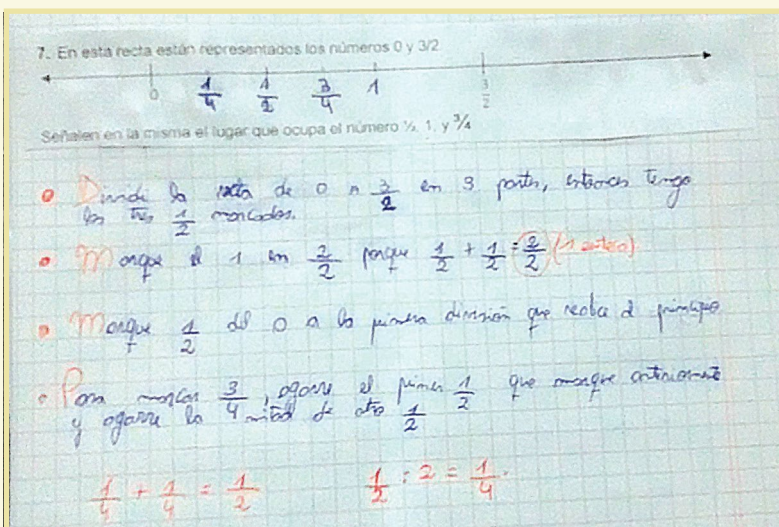 7. En esta recta están representados los números 0 y 3/2
0 1/4 1/2 3/4 1 3/2
Señalen en la misma el lugar que ocupa el número ½, 1, y ¾
Dividí la recta de 0 a 3/2 en 3 partes, entonces tengo
los tres 1/2 marcados.
Marque el 1 en 2/2 porque 1/2 + 1/2 = 2/2 (1 entero)
Marque 1/2 del 0 a la primera división que realice al principio
Para marcar 3/4, agarre el primer 1/2 que marque anteriormente
y agarre la mitad de otro 1/2
1/4 + 1/4 = 1/2 1/2 : 2 = 1/4.